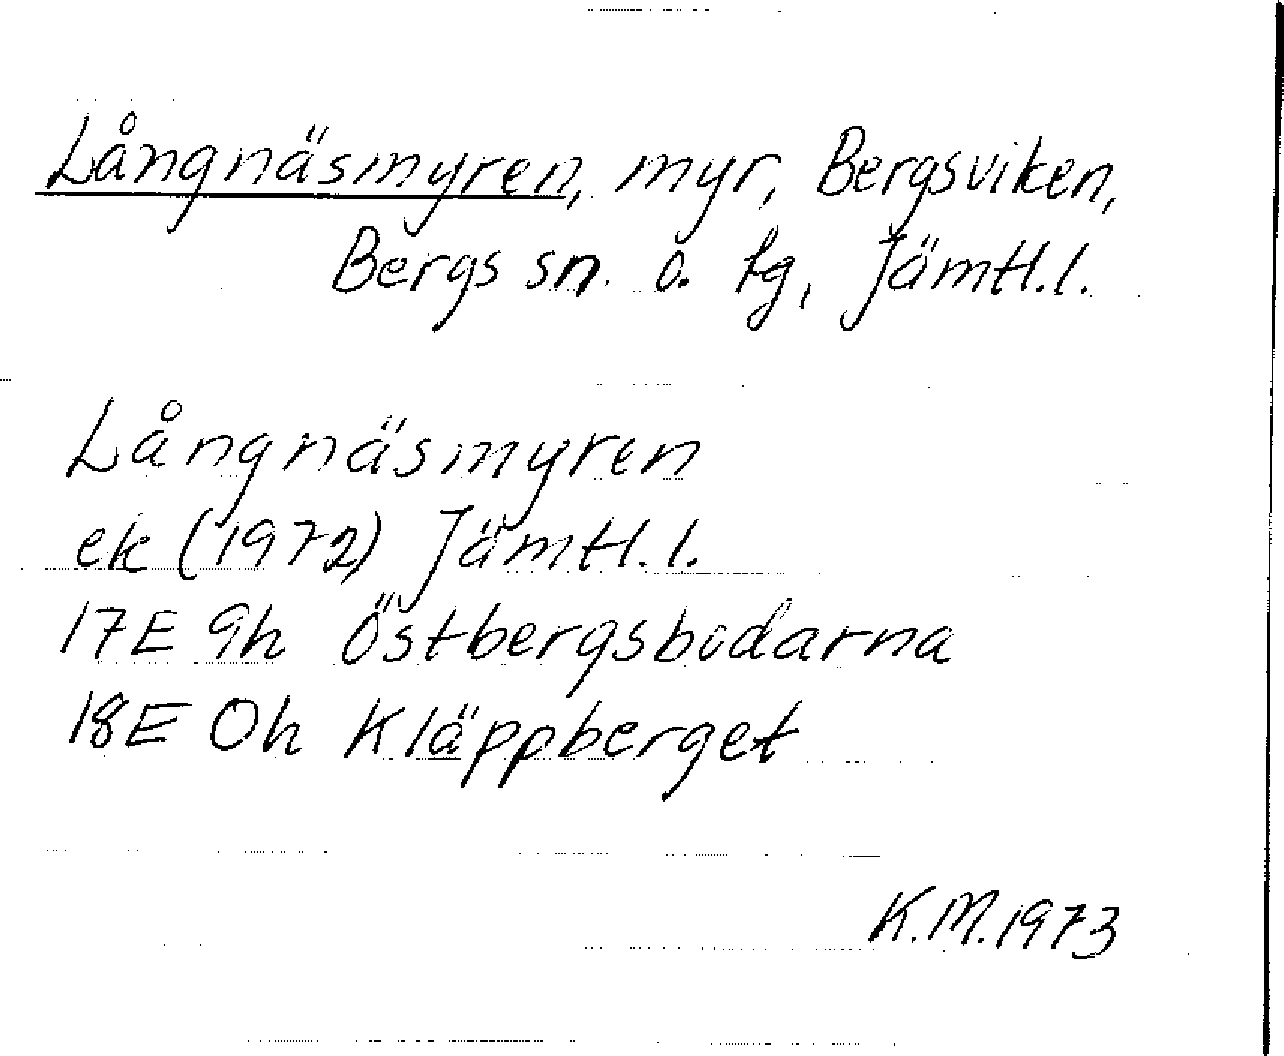 Långnäsmyren, myr, Bergsviken,
Bergs sn. o. tg, Jämtl.l.
Långnäsmyren
ek (1972) Jämtl.l.
17E 9h Östbergsbodarna
18E 0h Kläppberget
K.M.1973